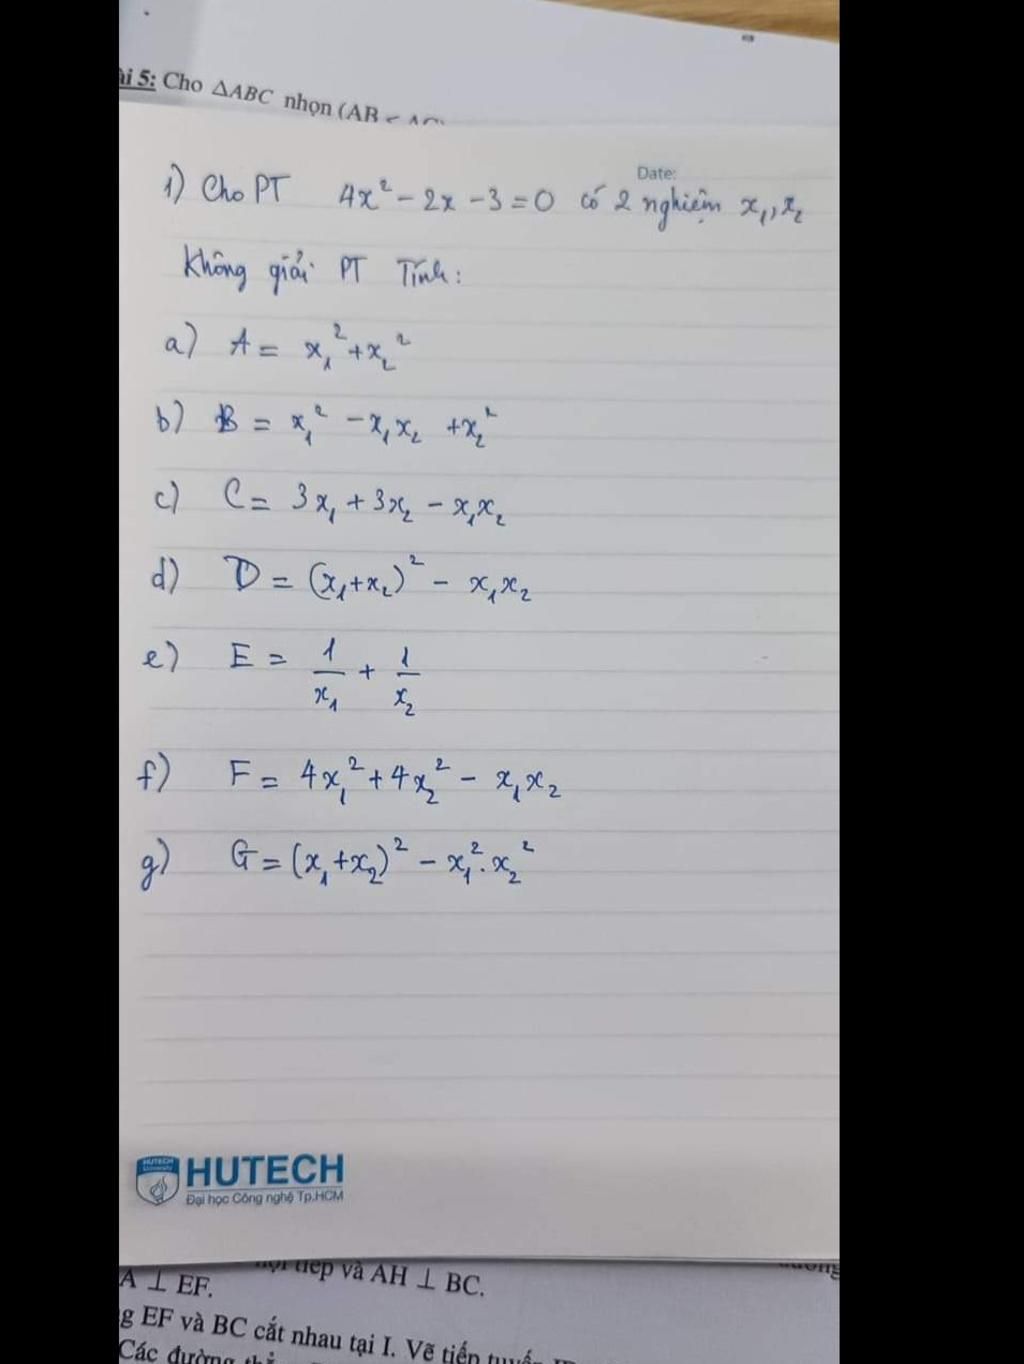 ài 5: Cho ΔABC nhọn (AB < AC)
Date:
1) Cho PT 4x² - 2x - 3 = 0 có 2 nghiệm x₁, x₂
Không giải PT Tính:
a) A = x₁² + x₂²
b) B = x₁² - x₁x₂ + x₂²
c) C = 3x₁ + 3x₂ - x₁x₂
d) D = (x₁+x₂)² - x₁x₂
e) E = 1/x₁ + 1/x₂
f) F = 4x₁² + 4x₂² - x₁x₂
g) G = (x₁+x₂)² - x₁².x₂²
HUTECH
University
HUTECH
Đại học Công nghệ Tp.HCM
tiếp và AH ⊥ BC.
A ⊥ EF.
g EF và BC cắt nhau tại I. Vẽ tiếp tuyến
Các đường